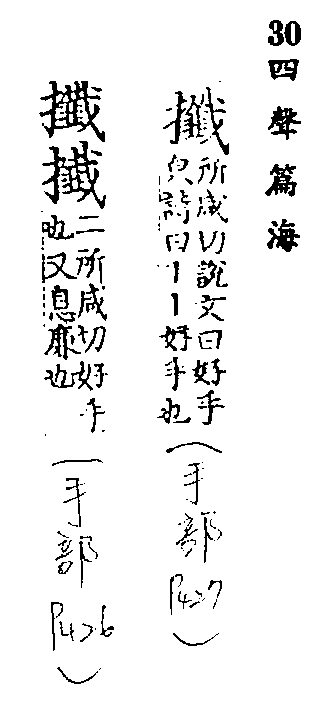 30 四聲篇海
攕
所咸切說文曰好手
皃詩曰丨丨好手也
(手部 P427)
攕
二所咸切好手
也又息廉也
(手部 P426)